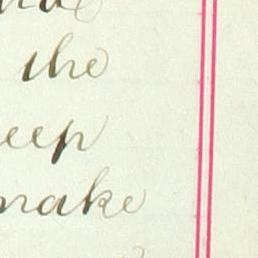 the
eep
make